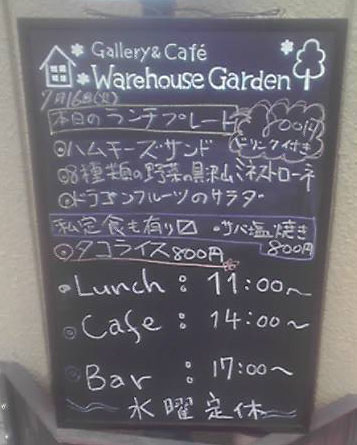 Gallery & Café
Warehouse Garden
7月16日(火)
本日のランチプレート 800円
ドリンク付き
◎ハムチーズサンド
◎8種類の野菜の具沢山ミネストローネ
◎ドラゴンフルーツのサラダ
定食も有り〼 ・サバ塩焼き
800円
◎タコライス 800円
◎Lunch : 11:00〜
◎Cafe : 14:00〜
◎Bar : 17:00〜
水曜定休